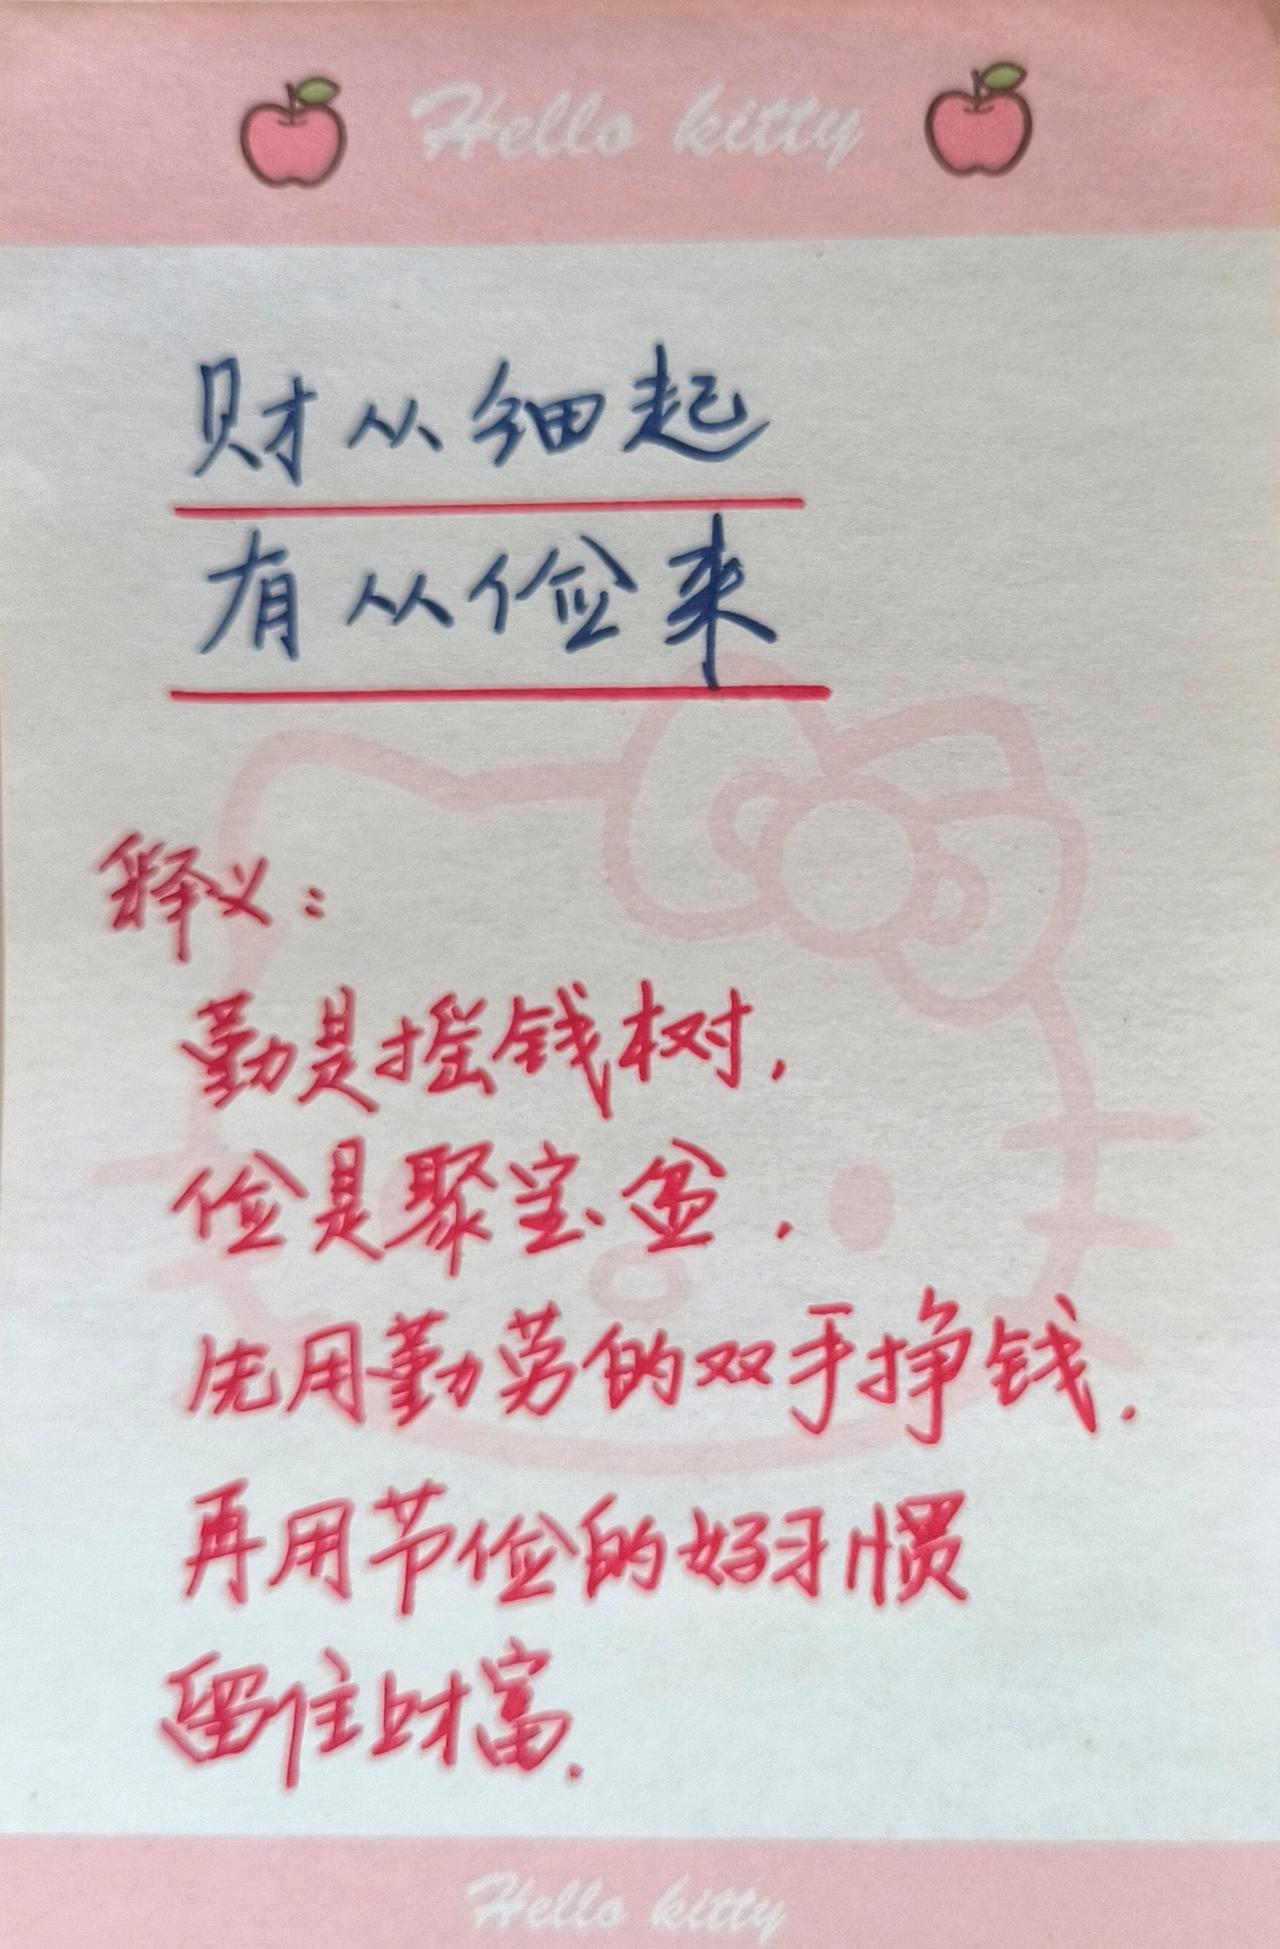 Hello kitty
财从细起
有从俭来
释义：
勤是摇钱树，
俭是聚宝盆.
先用勤劳的双手挣钱.
再用节俭的好习惯
留住财富.
Hello kitty